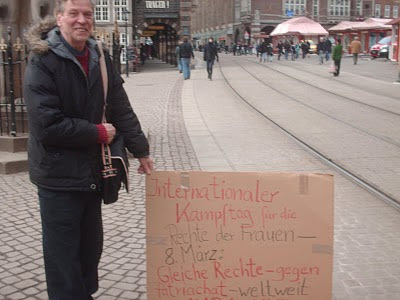 TRÄGER
Internationaler
Kampftag für die
Rechte der Frauen—
8. März:
Gleiche Rechte-gegen
Patriachat-weltweit